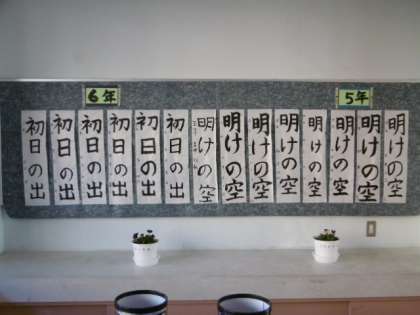 6年
初日の出
初日の出
初日の出
初日の出
初日の出
初日の出
5年
明けの空
明けの空
明けの空
明けの空
明けの空
明けの空
明けの空
明けの空